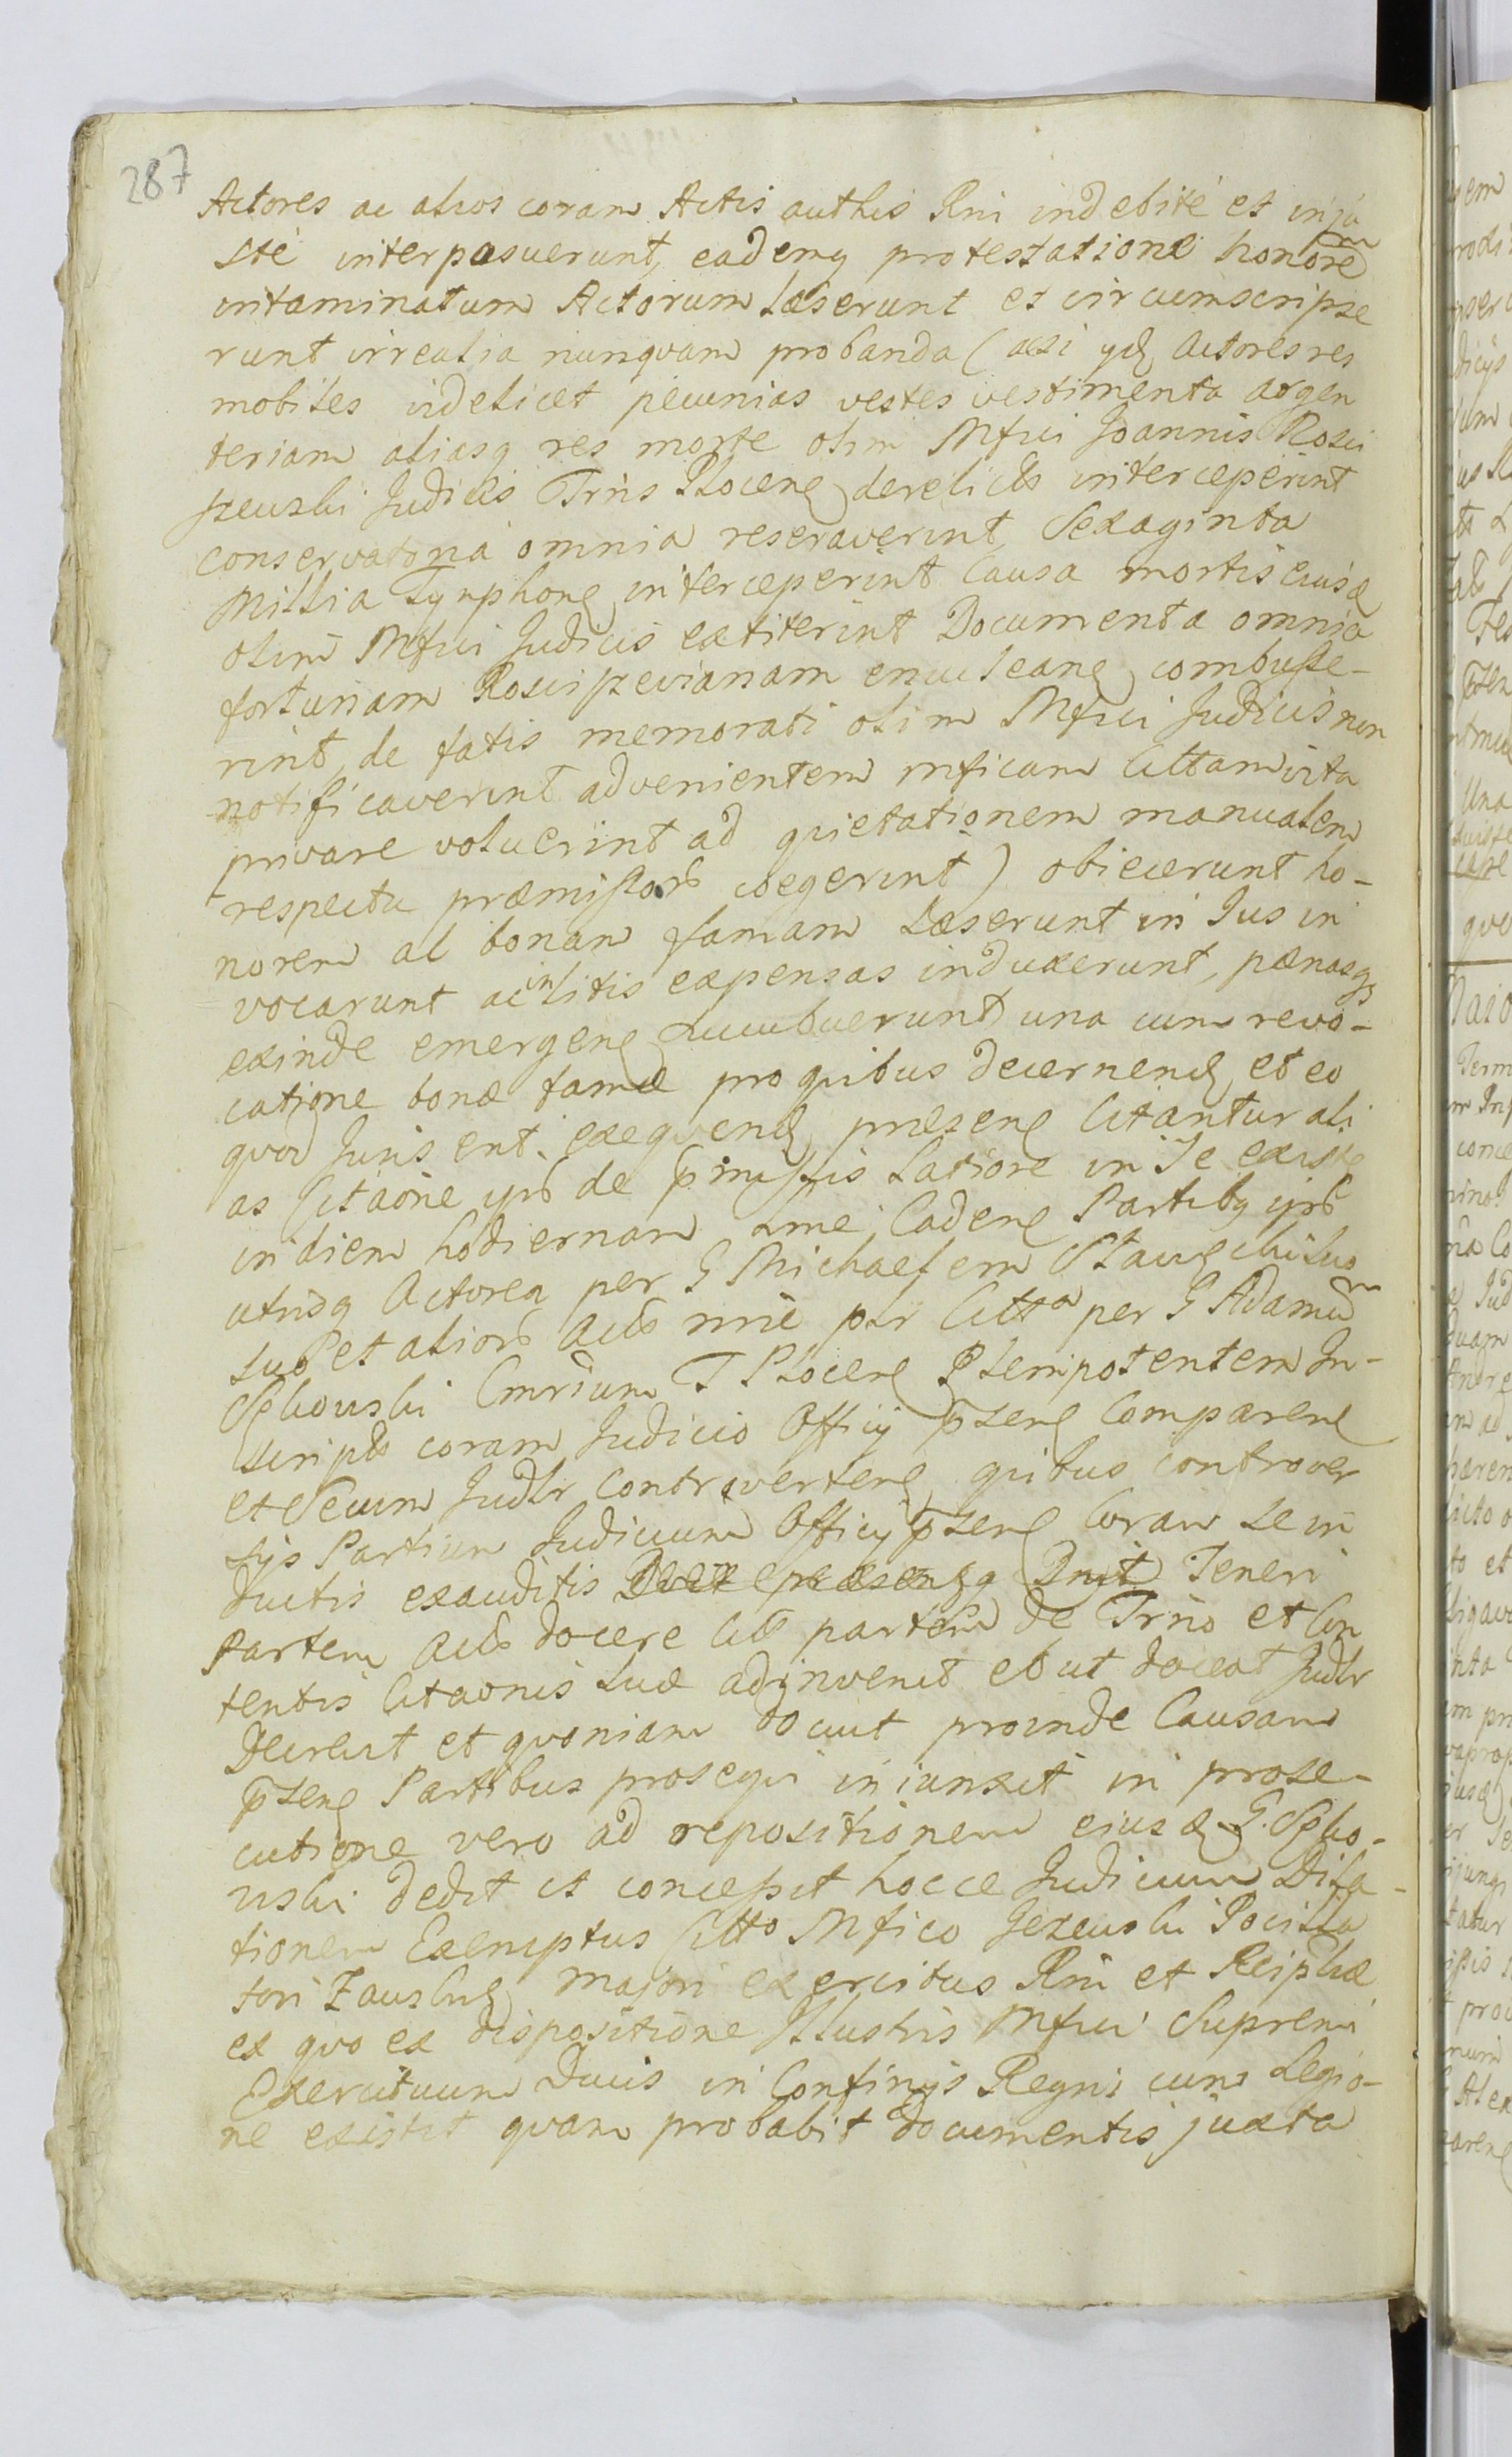 287
Actores ac alios coram Actis authis Rni indebité et inju
sté interposuerunt, eademq protestatione honorem
intaminatum Actorum læserunt et circumscripse
runt irrealia nunquam probanda (acsi yd Actores res
mobiles videlicet pecunias vestes vestimenta argen
teriam aliasq res morte olim Mfici Joannis Rosci
szewski Judicis Trris Plocen derelictas interceperint
conservatoria omnia reseraverint, Sexaginta
Millia Tynphon interceperint Causa mortis eiusd
olim Mfici Judicis extiterint Documenta omnia
fortunam Rosciszevianam enuclean combusse-
rint, de fatis memorati olim Mfici Judicis non
notificaverint advenientem mficam Cittam vita
privare voluerint ad quietationem manualem
respectu præmissorum coegerint) obiecerunt ho-
norem ac bonam famam læserunt in Jus in
vocarunt ac in litis expensas induxerunt, pænasq
exinde emergen succubuerunt una cum revo-
catione bonæ famæ pro quibus decernend et eo
quod Juris erit exequend præsen Citantur ali
as Citaõne ipsa de p̃missis latiore in se existe
in diem hodiernam Lme Caden Partibq ipsis
utrisq Actorea per G Michaelem
suo et aliorum Act nnie per Citta per G Adamum
Sękowski Cmrium T Plocen Plenipotentem In-
scriptos coram Judicio Officij p̃sen Comparen
et Secum Judlr Controverten, quibus controver
sijs Partium Judicium Officij p̃sen Coram se in
ductis exauditis Dnit Teneri
Partem Act docere Citt partem de Trno et Con
tentis Citaonis suæ adinvenit et ut doceat Judlr
Decrevit et quoniam docuit proinde Causam
p̃sen Partibus prosequi injunxit in prose-
cutione vero ad repositionem eiusd G. Sęko-
wski dedit et concessit hocce Judicium Dila-
tionem Exemptus Citto Mfico Jezewski Pocilla
tori Zawskrz Majori exercitus Rni et Reiplicæ
ex quo ex dispositione Illustris Mfici Supremi
Exercituum Ducis in Confinijs Regni cum Legio-
ne existit quam probabit documentis juxta